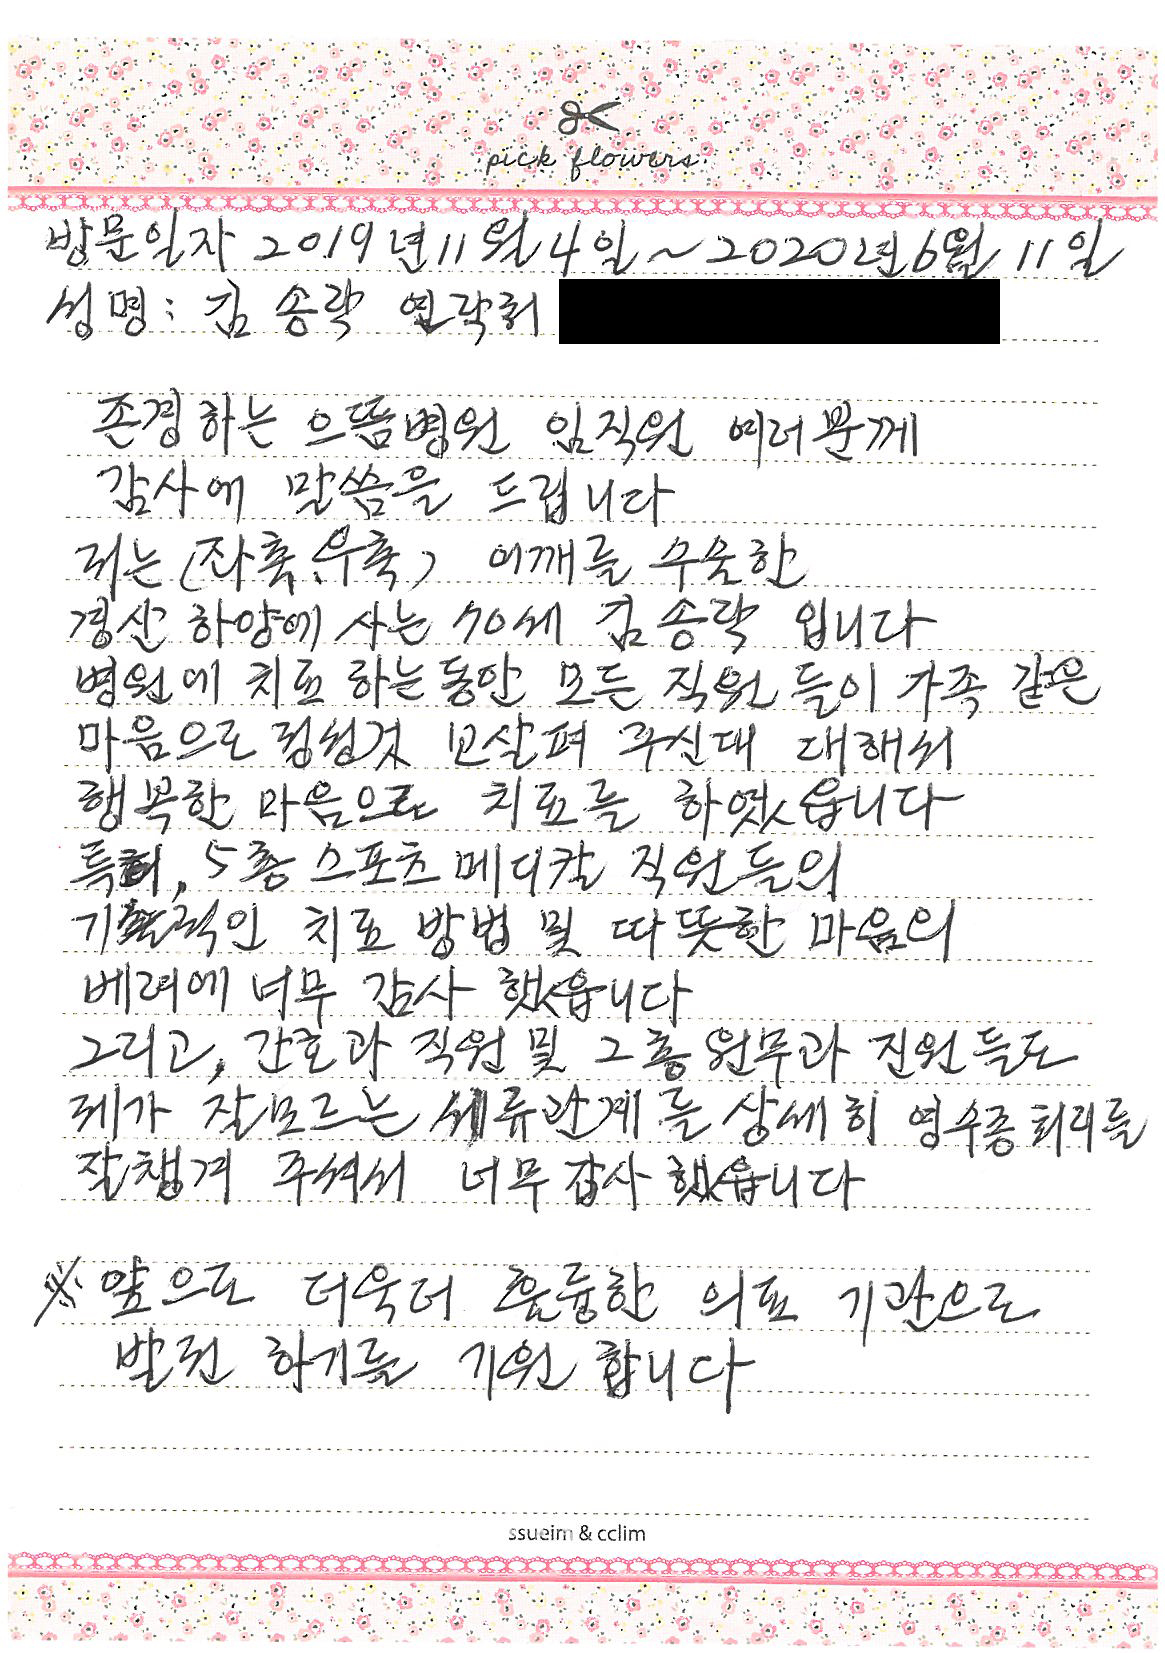 pick flowers
방문일자 2019년 11월 4일 ~ 2020년 6월 11일
성명: 김송락 연락처
존경하는 으뜸병원 임직원 여러분께
감사에 말씀을 드립니다
저는 (좌측, 우측) 어깨를 수술한
경산 하양에 사는 70세 김송락 입니다
병원에 치료 하는동안 모든 직원 들이 가족 같은
마음으로 정성것 보살펴 주신대 대해서
행복한 마음으로 치료를 하였읍니다
특히, 5층 스포츠메디칼 직원들의
치료 방법 및 따뜻한 마음의
베려에 너무 감사 했읍니다
그리고, 간호과 직원 및 2층 원무과 직원들도
제가 잘모르는 세류관계를 상세히 영수증 처리를
잘챙겨 주셔서 너무 감사 했읍니다
※ 앞으로 더욱더 훌륭한 의료 기관으로
발전 하기를 기원 합니다
ssueim & cclim